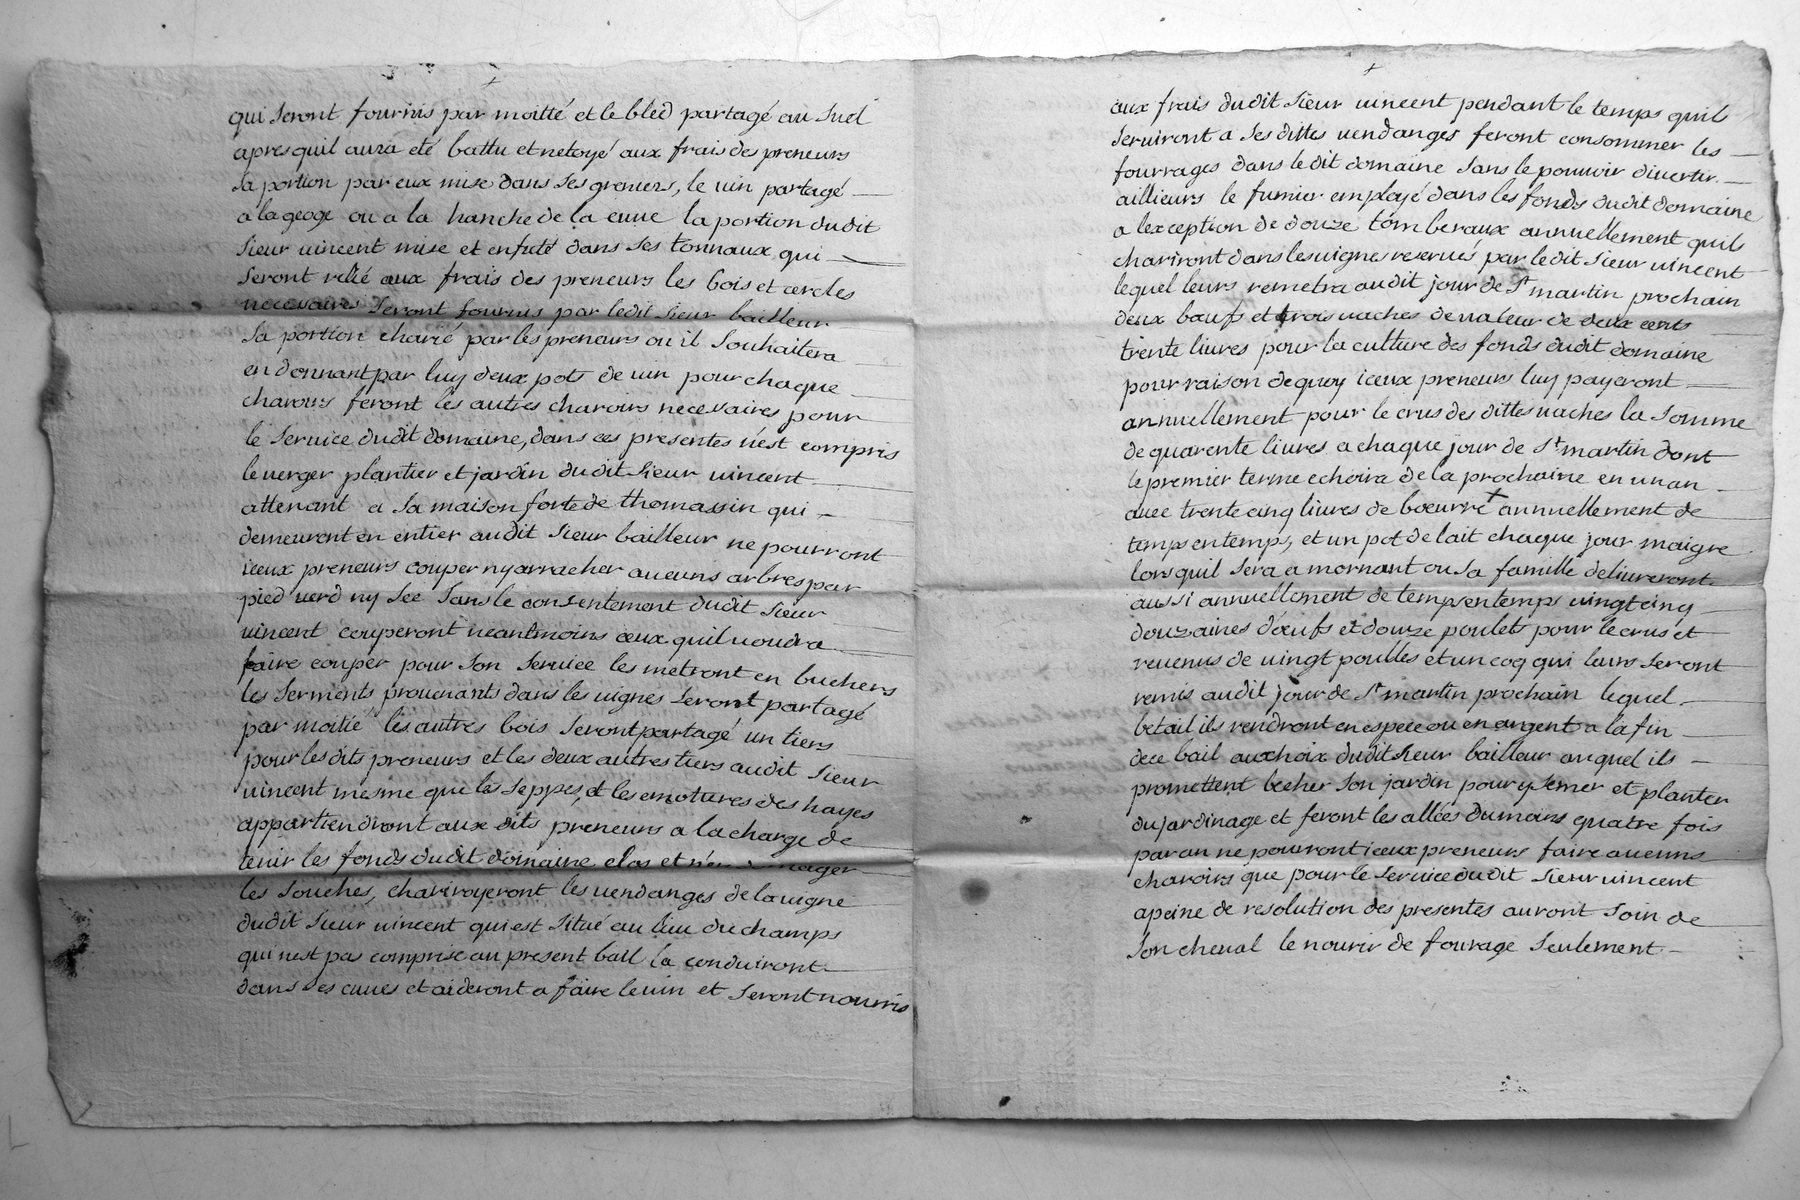 qui seront fournis par moitié et le bled partagé au suel
apres quil aura eté battu et netoyé aux frais des preneurs
sa portion par eux mise dans ses greniers, le vin partagé
a la geoge ou a la hanche de la cuve la portion dudit
sieur vincent mise et enfuté dans ses tonnaux qui
seront relié aux frais des preneurs les bois et cercles
necessaires seront fournis par ledit sieur bailleur
sa portion charié par les preneurs ou il souhaitera
en donnant par luy deux pots de vin pour chaque
charois feront les autres charoirs necessaires pour
le service dudit domaine, dans ces presentes n'est compris
le verger plantier et jardin dudit sieur vincent
attenant a sa maison forte de thomassin qui
demeurent en entier audit sieur bailleur ne pourront
iceux preneurs couper ny arracher aucuns arbres par
pied verd ny sec sans le consentement dudit sieur
vincent couperont neantmoins ceux quil voudra
faire couper pour son service les metront en buchers
les serments provenants dans les vignes seront partagé
par moitié les autres bois seront partagé un tiers
pour les dits preneurs et les deux autres tiers audit sieur
vincent mesme que les seppes, et les emotures des hayes
appartiendront aux dits preneurs a la charge de
tenir les fonds dudit domaine clos et
les souches, chariroyeront les vendanges de la vigne
dudit sieur vincent qui est situé au lieu du champs
qui nest pas comprise au present bail la conduiront
dans ses cuves et aideront a faire le vin et seront nourris
aux frais dudit sieur vincent pendant le temps quils
serviront a ses dittes vendanges feront consommer les
fourrages dans le dit domaine sans le pouvoir divertir
aillieurs le fumier employé dans les fonds dudit domaine
a lexception de douze tomberaux annuellement quils
chariront dans les vignes reservés par ledit sieur vincent
lequel leurs remetra audit jour de St martin prochain
deux bœufs et trois vaches de valeur de deux cents
trente livres pour la culture des fonds dudit domaine
pour raison de quoy iceux preneurs luy payeront
annuellement pour le crus des dittes vaches la somme
de quarente livres a chaque jour de St martin dont
le premier terme echoira de la prochaine en un an
avec trente cinq livres de bœurre + annuellement de
temps en temps, et un pot de lait chaque jour maigre
lors quil sera a mornant ou sa famille delivreront
aussi annuellement de temps en temps vingt cinq
douzaines d'œufs et douze poulets pour le crus et
revenus de vingt poulles et un coq qui leurs seront
remis audit jour de St martin prochain lequel
betail ils rendront en espece ou en argent a la fin
de ce bail au choix dudit sieur bailleur auquel ils
promettent becher son jardin pour y semer et planter
du jardinage et feront les allées du moins quatre fois
par an ne pouront iceux preneurs faire aucuns
charoirs que pour le service dudit sieur vincent
a peine de resolution des presentes auront soin de
son cheval le nourir de fourage seulement